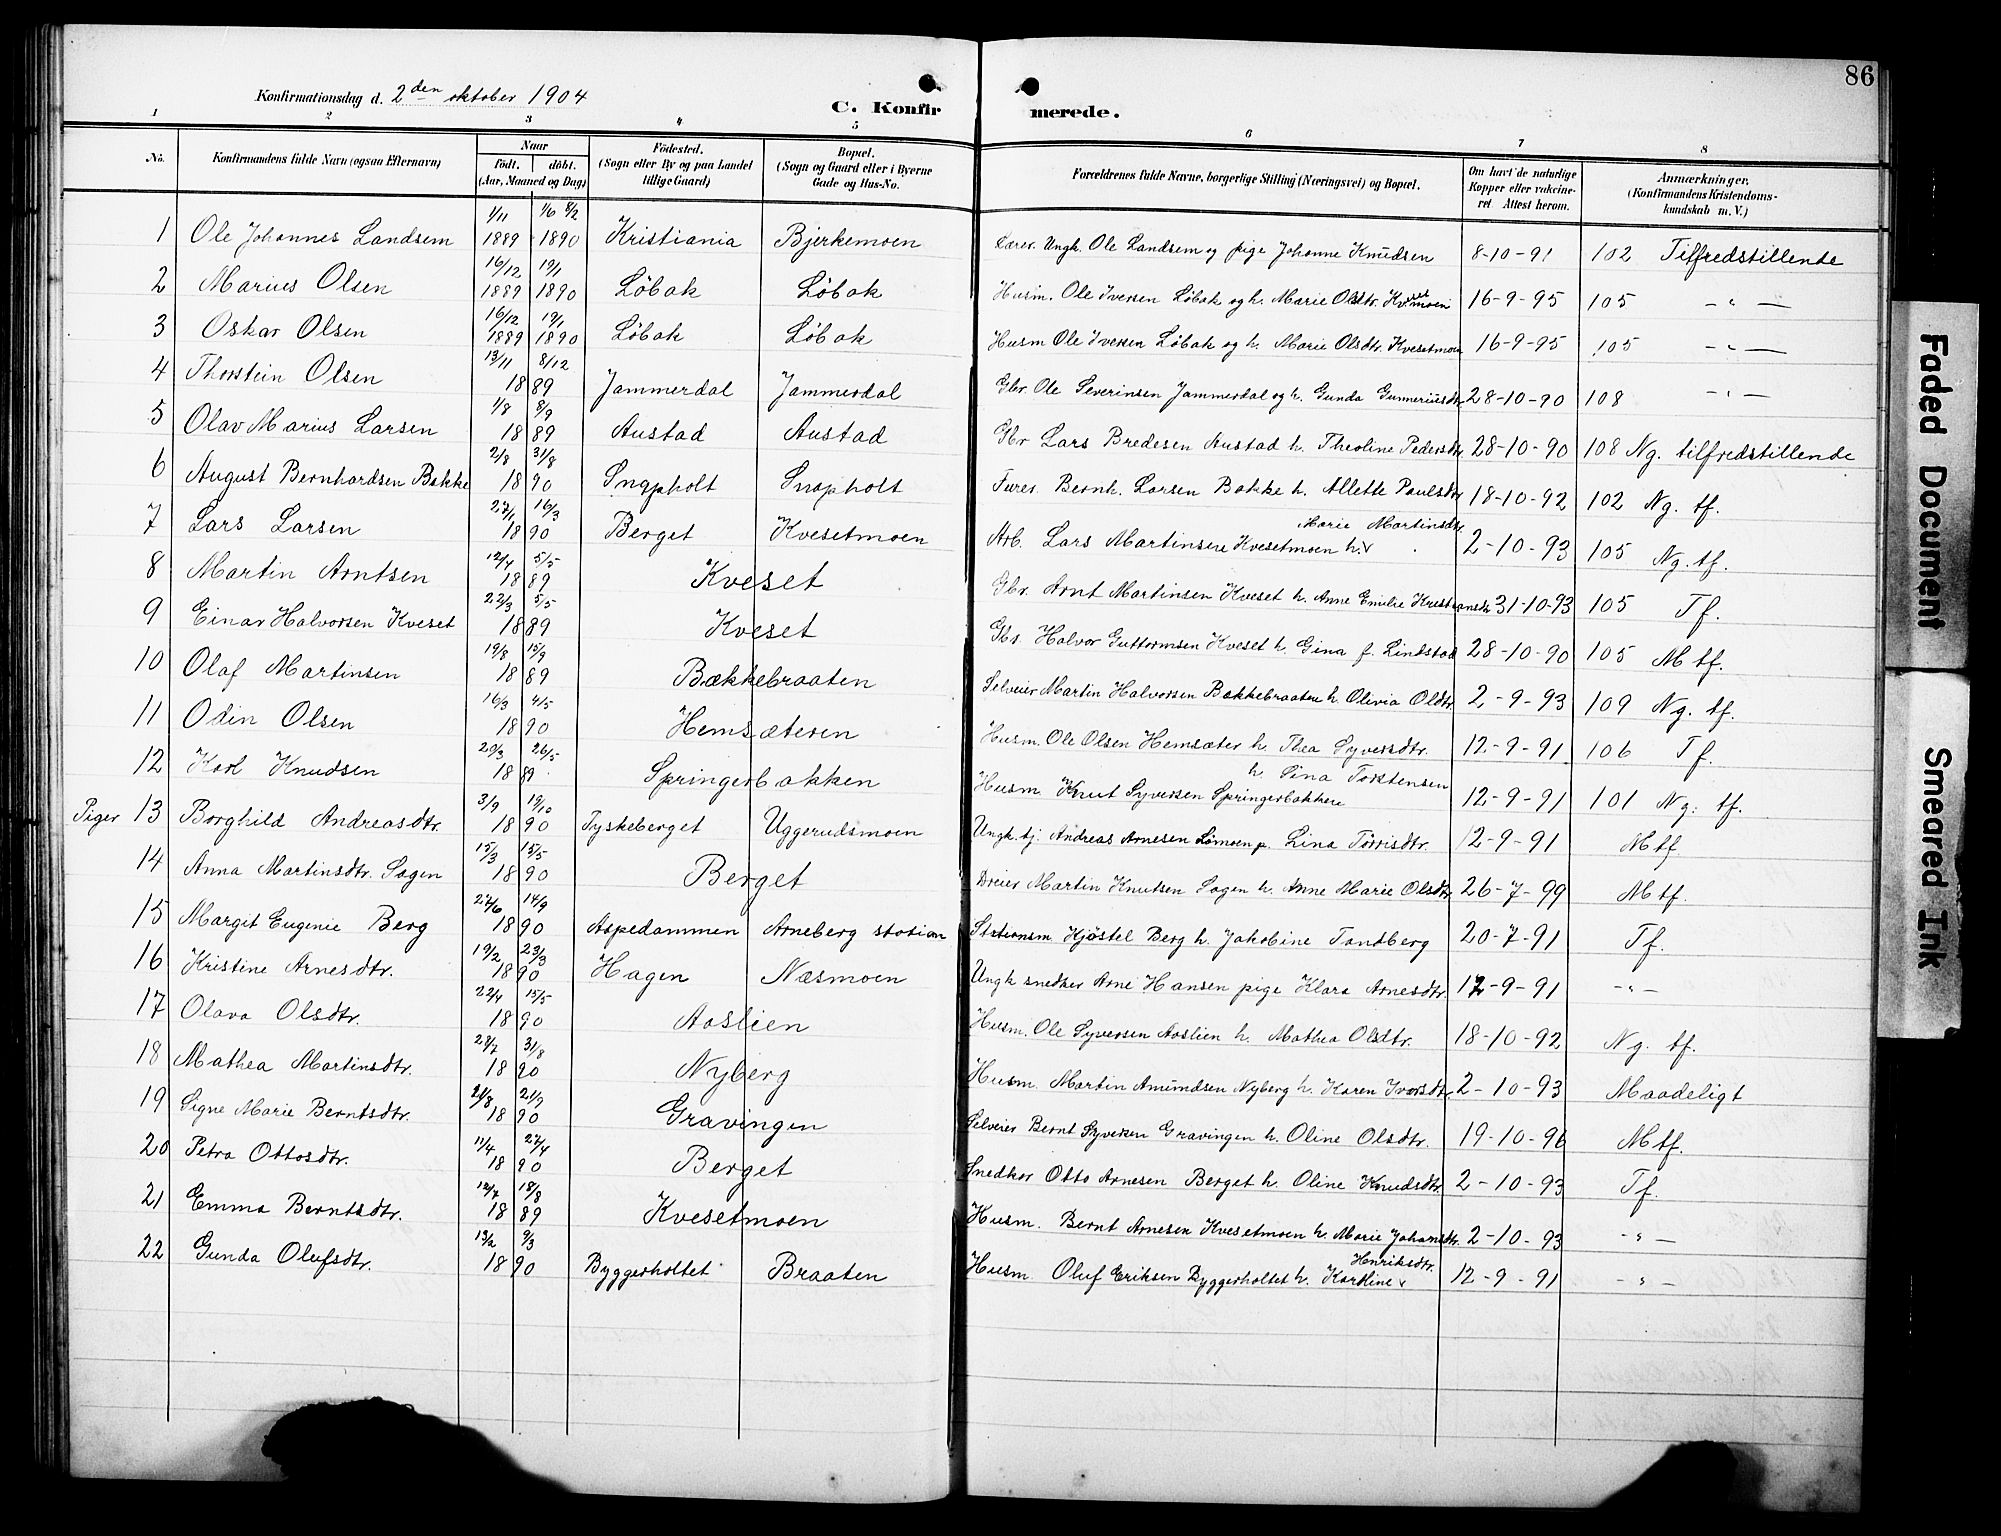 86
Konfirmationsdag d. 2den oktober 1904
C. Konfirmerede.
1 2 3 4 5 6 7 8
No. Konfirmandens fulde Navn (ogsaa Efternavn) Naar født. døbt. (Aar, Maaned og Dag) Fødested. (Sogn eller By og paa Landet tillige Gaard) Bopæl. (Sogn og Gaard eller i Byerne Gade og Hus-No. Forældrenes fulde Navne, borgerlige Stilling (Næringsvei) og Bopæl. Om havt de naturlige Kopper eller vakcineret. Attest herom. Anmærkninger. (Konfirmandens Kristendomskundskab m. V.)
1 Ole Johannes Landsem 1/11 1889 1/6 8/2 1890 Kristiania Bjerkemoen Ungk. Ole Landsem og pige Johanne Knudsen 8-10-91 102 Tilfredstillende
2 Marius Olsen 16/12 1889 19/1 1890 Løbak Løbak Husm. Ole Iversen Løbak og h. Marie Olsdtr. Kvesetmoen 16-9-95 105 - " -
3 Oskar Olsen 16/12 1889 19/1 1890 Løbak Løbak Husm Ole Iversen Løbak og h. Marie Olsdtr. Kvesetmoen 16-9-95 105 - " -
4 Thorstein Olsen 13/11 8/12 1889 Jammerdal Jammerdal Gbr. Ole Severinsen Jammerdal og h. Gunda Gunneriusdtr. 28-10-90 108 - " -
5 Olav Marius Larsen 1/8 8/9 1889 Austad Austad Gbr Lars Bredesen Austad h. Theoline Pedersdtr. 28-10-90 108 Ng. tilfredstillende
6 August Bernhardsen Bakke 2/8 31/8 1890 Snapholt Snapholt Bernh. Larsen Bakke h. Allette Paulsdtr. 18-10-92 102 Ng. tf.
7 Lars Larsen 27/1 16/3 1890 Berget Kvesetmoen Arb. Lars Martinsen Kvesetmoen h. Marie Martinsdtr. 2-10-93 105 Ng. tf.
8 Martin Arntsen 12/4 5/5 1889 Kveset Gbr. Arnt Martinsen Kveset h. Anne Emilie Kristiansdtr 31-10-93 105 Tf.
9 Einar Halvorsen Kveset 22/3 5/5 1889 Kveset Gbr. Halvor Guttormsen Kveset h. Gina f. Lindstad 28-10-90 105 Mtf.
10 Olaf Martinsen 19/8 15/9 1889 Bækkebraaten Selveier Martin Halvorsen Bækkebraaten h. Olivia Olsdtr. 2-9-93 109 Ng. tf.
11 Odin Olsen 16/3 4/5 1890 Hemsæteren Husm. Ole Olsen Hemsæter h. Thea Syversdtr. 12-9-91 106 Tf.
12 Karl Knudsen 20/3 26/5 1889 Springerbakken Husm Knut Syversen Springerbakken h. Sina Torstensen 12-9-91 101 Ng. tf.
Piger 13 Borghild Andreasdtr. 3/9 19/10 1890 Tyskeberget Uggerudsmoen Ungk. tj. Andreas Arnesen Lømoen p. Lina Tørrisdtr. 12-9-91 Mtf
14 Anna Martinsdtr. Sagen 15/3 15/5 1890 Berget Dreier Martin Knutsen Sagen h. Anne Marie Olsdtr 26-7-99 Mtf.
15 Margit Eugenie Berg 27/6 14/9 1890 Aspedammen Arneberg station Stationsm Kjøstel Berg h. Jakobine Tandberg 20-7-91 Tf.
16 Kristine Arnesdtr. 19/2 23/3 1890 Hagen Næsmoen Ungk snedker Arne Hansen pige Klara Arnesdtr. 12-9-91 - " -
17 Olava Olsdtr. 22/4 15/5 1890 Aaslien Husm. Ole Syversen Aaslien h. Mathea Olsdtr. 18-10-92 Ng. tf.
18 Mathea Martinsdtr. 28/7 31/8 1890 Nyberg Husm. Martin Amundsen Nyberg h. Karen Iversdtr. 2-10-93 Maadeligt
19 Signe Marie Berntsdtr. 21/8 21/9 1890 Gravingen Selveier Bernt Syversen Gravingen h. Oline Olsdtr. 19-10-96 Mtf.
20 Petra Ottosdtr. 11/4 27/4 1890 Berget Snedker Otto Arnesen Berget h. Oline Knudsdtr. 2-10-93 Tf.
21 Emma Berntsdtr. 12/7 18/8 1889 Kvesetmoen Husm. Bernt Arnesen Kvesetmoen h. Marie Johansdtr. 2-10-93 - " -
22 Gunda Olufsdtr. 13/2 9/3 1890 Byggerholtet Braaten Husm Oluf Eriksen Byggerholtet h. Karoline Henriksdtr. 12-9-91 - " -
Faded Document
Smeared Ink